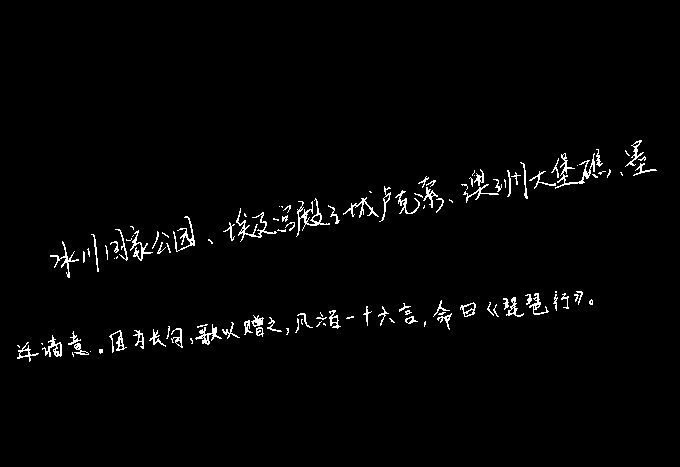 冰川国家公园、埃及宫殿之城卢克索、澳洲大堡礁、墨
迁谪意。因为长句,歌以赠之,凡六百一十六言,命曰《琵琶行》。